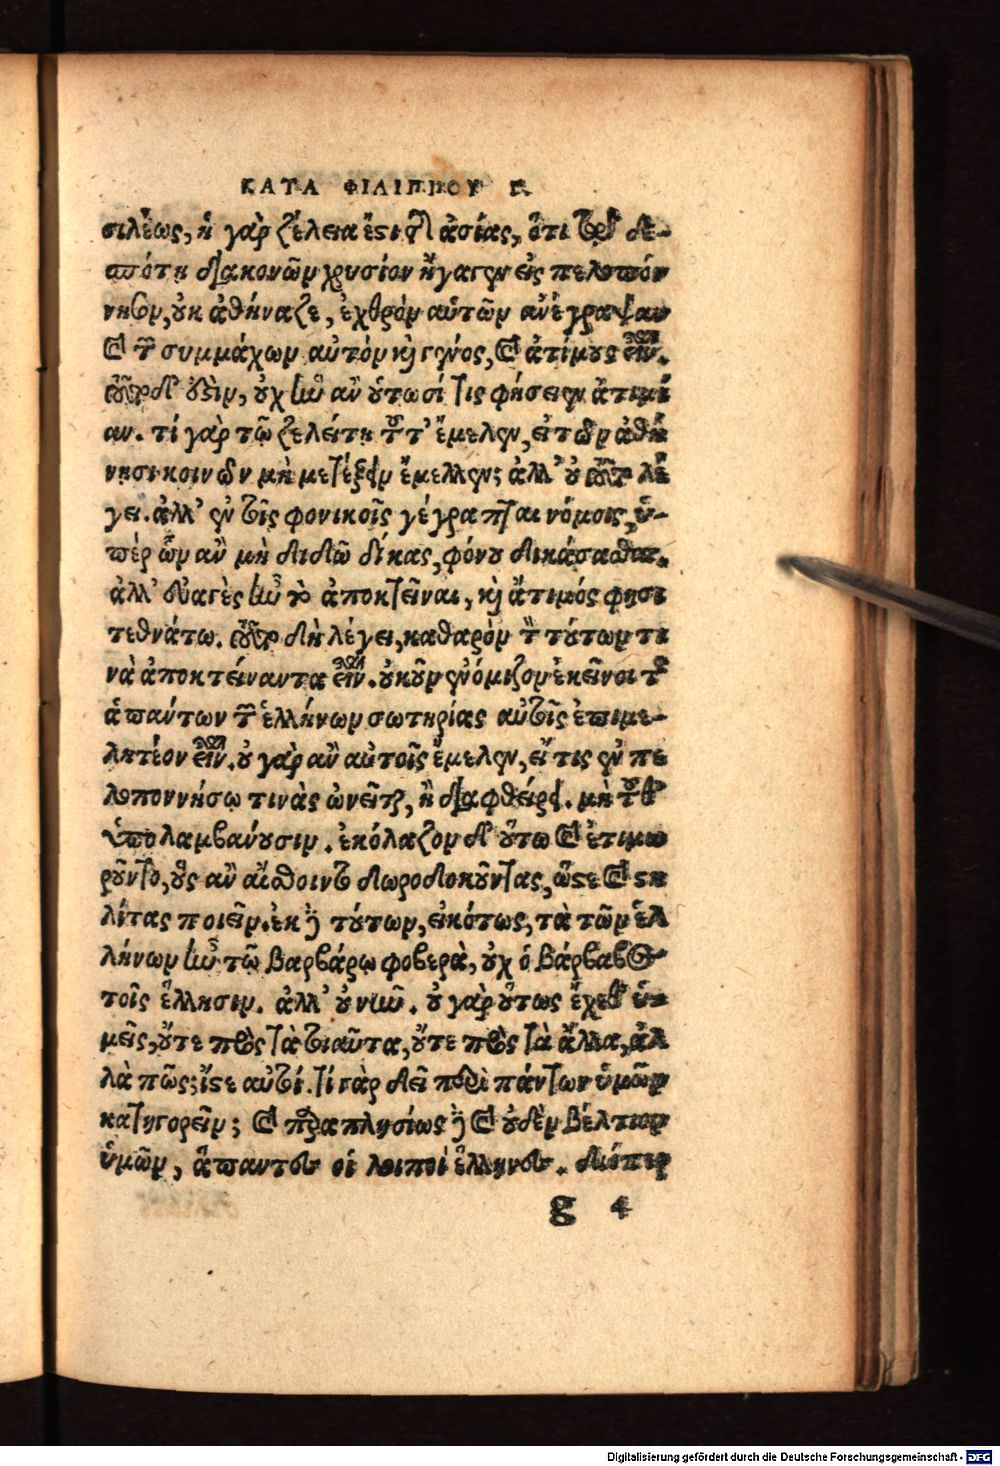 ΚΑΤΑ ΦΙΛΙΠΠΟΥ Γ.
σιλέως, ἡ γὰρ ζέλεια ἔστι τῆς ἀσίας, ὅτι τῷ δε-
σπότῃ διακονῶν χρυσίον ἤγαγεν εἰς πελοπόν
νησον, οὐκ ἀθήναζε, ἐχθρὸν αὐτῶν ἀνέγραψαν
καὶ τῶν συμμάχων αὐτὸν κὶ γένος, καὶ ἀτίμους εἶναι.
τοῦτο δ' οὐδὲν, οὐχ ἣν ἂν οὑτωσί τις φήσειεν ἀτιμί
αν. τί γὰρ τῷ ζελείτῃ τοῦτ' ἔμελεν, εἰ τῶν ἀθή
νησι κοινῶν μὴ μεθέξειν ἔμελλεν; ἀλλ' οὐ τοῦτο λέ
γει. ἀλλ' ἐν τοῖς φονικοῖς γέγραπται νόμοις, ὑ-
πὲρ ὧν ἂν μὴ διδῷ δίκας, φόνου δικάσασθαι.
ἀλλ' εὐαγὲς ἦν τὸ ἀποκτεῖναι, κὶ ἄτιμός φησι
τεθνάτω. τοῦτο δὴ λέγει, καθαρὸν τὸν τούτων τι
νὰ ἀποκτείναντα εἶναι. οὐκοῦν ἐνόμιζον ἐκεῖνοι τῆς
ἁπάντων τῶν ἑλλήνων σωτηρίας αὐτοῖς ἐπιμε-
λητέον εἶναι. οὐ γὰρ ἂν αὐτοῖς ἔμελεν, εἴ τις ἐν πε
λοποννήσῳ τινὰς ὠνεῖται, ἢ διαφθείρει. μὴ τοῦθ'
ὑπολαμβάνουσιν. ἐκόλαζον δ' οὕτω καὶ ἐτιμω
ροῦντο, οὓς ἂν αἴσθοιντο δωροδοκοῦντας, ὥστε καὶ στη
λίτας ποιεῖν. ἐκ δὲ τούτων, εἰκότως, τὰ τῶν ἑλ
λήνων ἦν τῷ βαρβάρῳ φοβερὰ, οὐχ ὁ βάρβαρος
τοῖς ἕλλησιν. ἀλλ' οὐ νῦν. οὐ γὰρ οὕτως ἔχεθ' ὑ-
μεῖς, οὔτε πρὸς τὰ τοιαῦτα, οὔτε πρὸς τὰ ἄλλα, ἀλ
λὰ πῶς; ἴστε αὐτοί. τί γὰρ δεῖ περὶ πάντων ὑμῶν
κατηγορεῖν; καὶ παραπλησίως δὲ καὶ οὐδὲν βέλτιον
ὑμῶν, ἅπαντες οἱ λοιποὶ ἕλληνες. διόπερ
g 4
Digitalisierung gefördert durch die Deutsche Forschungsgemeinschaft - DFG